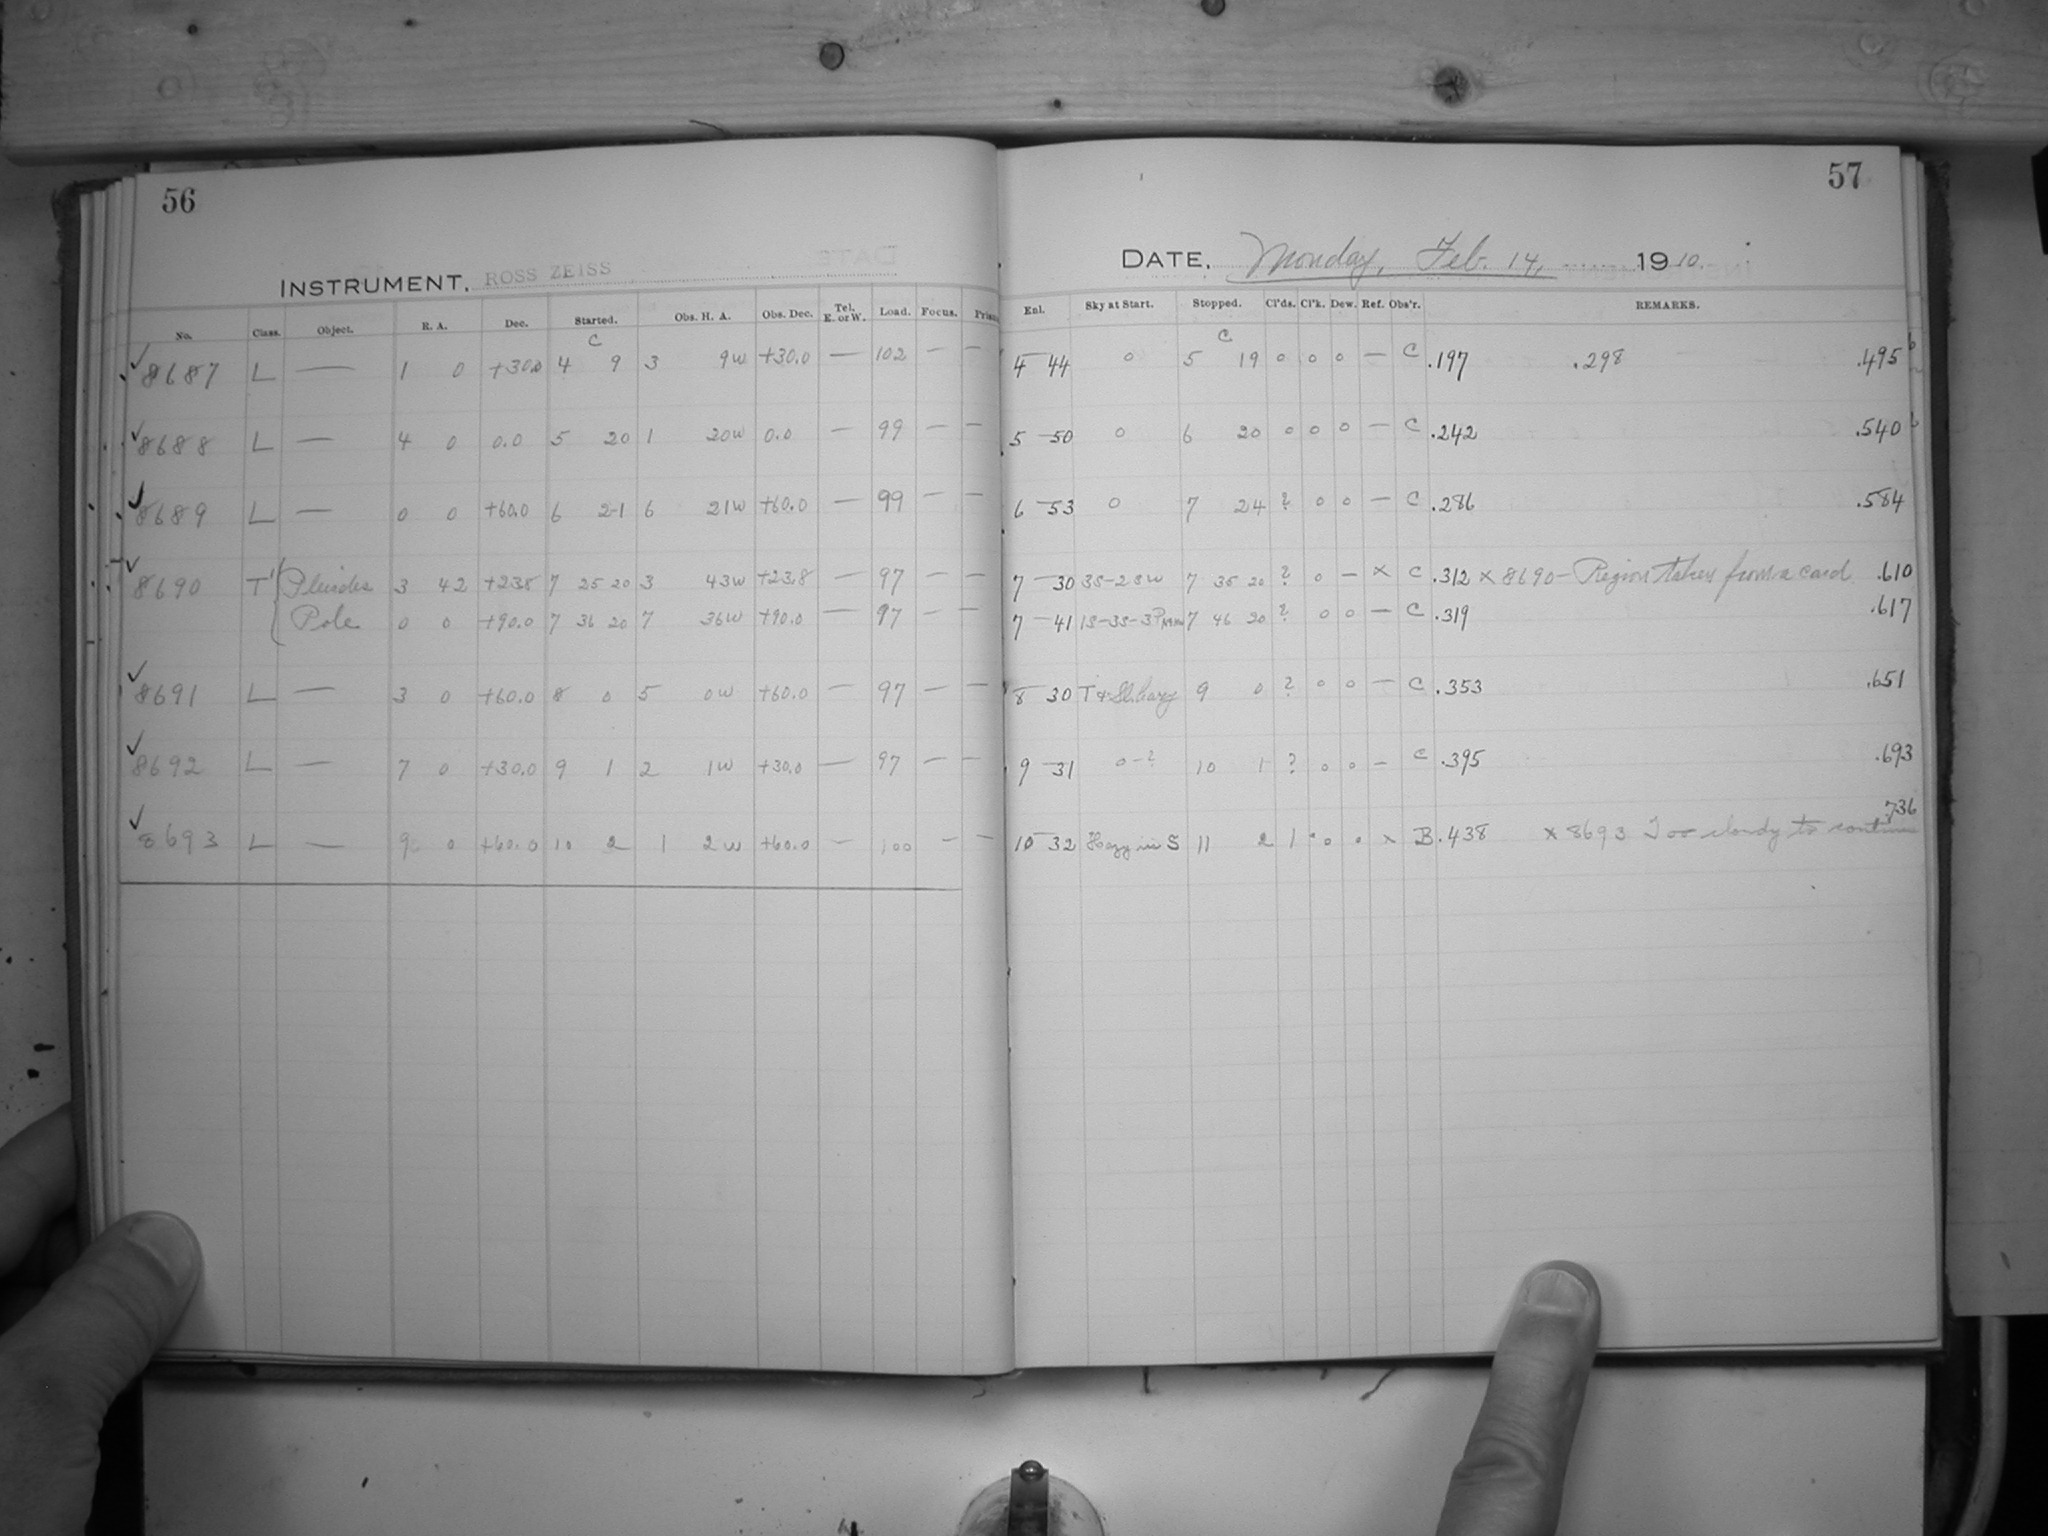 56
INSTRUMENT, ROSS ZEISS
No. Class. Object. R. A. Dec. Started. Obs. H. A. Obs. Dec. Tel. E. or W. Load. Focus. Prism
C
8687 L — 1 0 +30.0 4 9 3 9W +30.0 — 102 — —
8688 L — 4 0 0.0 5 20 1 20W 0.0 — 99 — —
8689 L — 0 0 +60.0 6 21 6 21W +60.0 — 99 — —
8690 T' Pleiades 3 42 +23.8 7 25 20 3 43W +23.8 — 97 — —
Pole 0 0 +90.0 7 36 20 7 36W +90.0 — 97 — —
8691 L — 3 0 +60.0 8 0 5 0W +60.0 — 97 — —
8692 L — 7 0 +30.0 9 1 2 1W +30.0 — 97 — —
8693 L — 9 0 +60.0 10 2 1 2W +60.0 — 100 — —
57
DATE, Monday, Feb. 14, 1910.
Enl. Sky at Start. Stopped. Cl'ds. Cl'k. Dew. Ref. Obs'r. REMARKS.
C
4 44 0 5 19 0 0 0 — C .197 .298 .495
5 50 0 6 20 0 0 0 — C .242 .540
6 53 0 7 24 ? 0 0 — C .286 .584
7 30 3S-2SW 7 35 20 ? 0 — × C .312 × 8690 — Region taken from a card .610
7 41 1S-3S-3P 7 46 20 ? 0 0 — C .319 .617
8 30 T & Sl. hazy 9 0 ? 0 0 — C .353 .651
9 31 0-? 10 1 ? 0 0 — C .395 .693
.736
10 32 Hazy in S 11 2 1 0 0 × B .438 × 8693 Too cloudy to continue